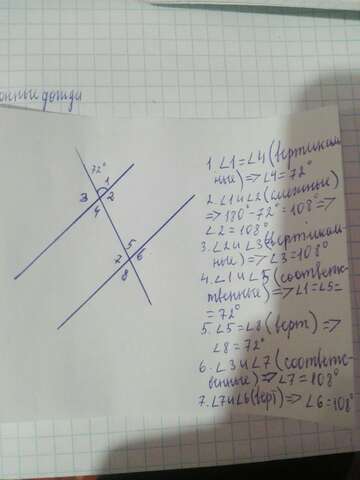 онные дожди
72°
1
3 2
4
5
7 6
8
1. ∠1=∠4 (вертикаль
ные) => ∠4=72°
2. ∠1 и ∠2 (смежные)
=> 180°-72°=108° =>
∠2=108°
3. ∠2 и ∠3 (вертикаль
ные) => ∠3=108°
4. ∠1 и ∠5 (соответс-
твенные) => ∠1=∠5=
=72°
5. ∠5=∠8 (верт) =>
∠8=72°
6. ∠3 и ∠7 (соответс-
венные) => ∠7=108°
7. ∠7 и ∠6 (верт) => ∠6=108°